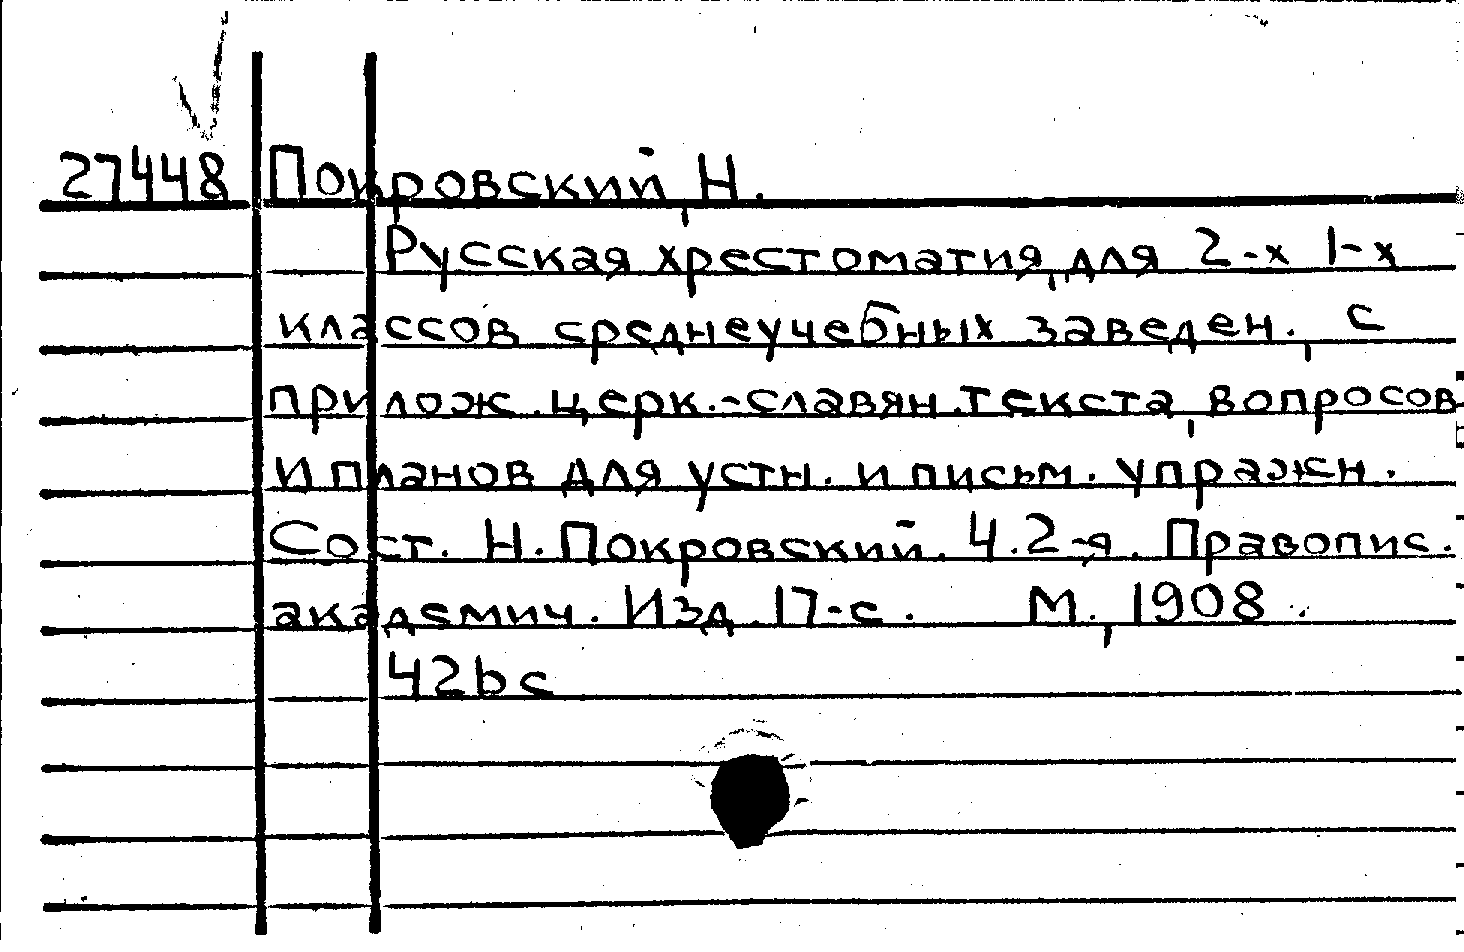 27448 Покровский, Н.
Русская хрестоматия, для 2-х 1-х
классов среднеучебных заведен., с
прилож. церк.-славян. текста, вопросов
и планов для устн. и письм. упражн.
Сост. Н. Покровский. Ч. 2-я. Правопис.
академич. Изд. 17-е. М., 1908.
42bс